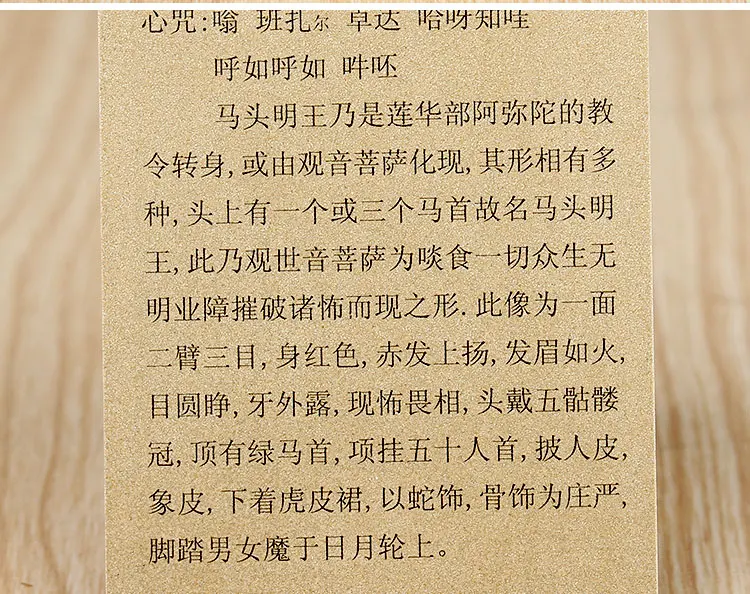 心咒:嗡 班扎尔 卓达 哈呀知哇
呼如呼如 吽呸
马头明王乃是莲华部阿弥陀的教
令转身,或由观音菩萨化现,其形相有多
种,头上有一个或三个马首故名马头明
王,此乃观世音菩萨为啖食一切众生无
明业障摧破诸怖而现之形.此像为一面
二臂三目,身红色,赤发上扬,发眉如火,
目圆睁,牙外露,现怖畏相,头戴五骷髅
冠,顶有绿马首,项挂五十人首,披人皮,
象皮,下着虎皮裙,以蛇饰,骨饰为庄严,
脚踏男女魔于日月轮上。